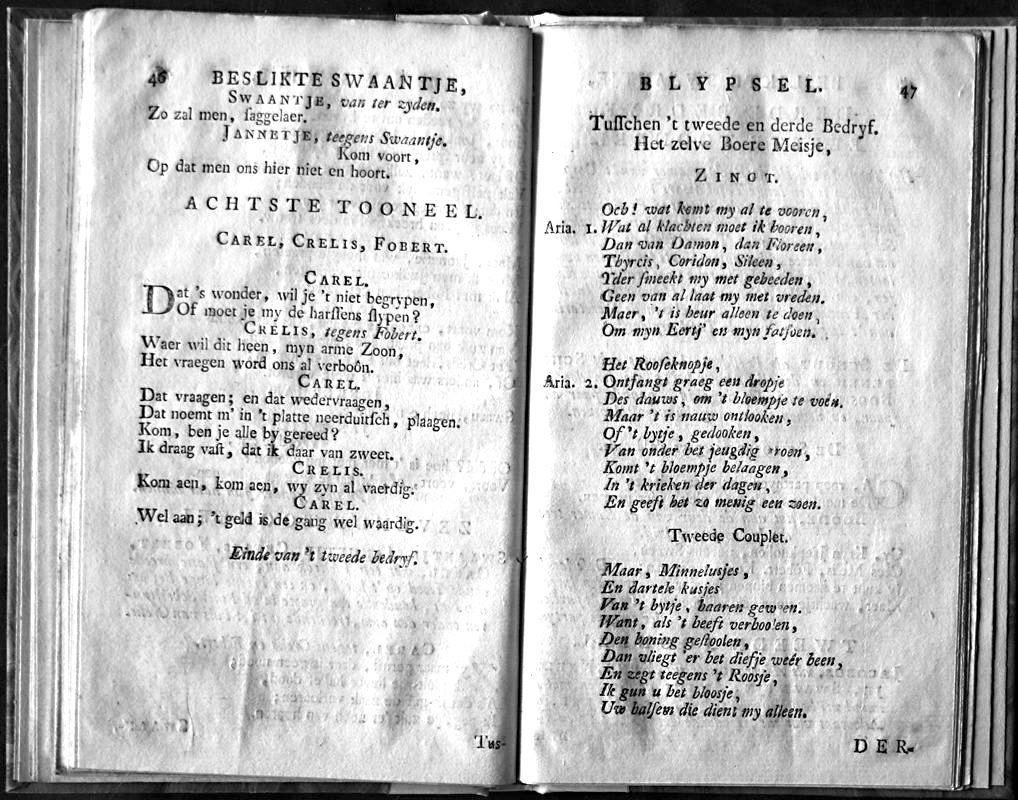 46 BESLIKTE SWAANTJE,
SWAANTJE, van ter zyden.
Zo zal men, ſaggelaer.
JANNETJE, teegens Swaantje.
Kom voort,
Op dat men ons hier niet en hoort.
ACHTSTE TOONEEL.
CAREL, CRELIS, FOBERT.
CAREL.
Dat 's wonder, wil je 't niet begrypen,
Of moet je my de harſſens ſlypen?
CRELIS, tegens Fobert.
Waer wil dit heen, myn arme Zoon,
Het vraegen word ons al verboôn.
CAREL.
Dat vraagen; en dat wedervraagen,
Dat noemt m' in 't platte neerduitſch, plaagen.
Kom, ben je alle by gereed?
Ik draag vaſt, dat ik daar van zweet.
CRELIS.
Kom aen, kom aen, wy zyn al vaerdig.
CAREL.
Wel aan; 't geld is de gang wel waardig.
Einde van 't tweede bedryf.
Tus-
BLYPSEL. 47
Tuſſchen 't tweede en derde Bedryf.
Het zelve Boere Meisje,
ZINGT.
Och! wat komt my al te vooren,
Aria. 1. Wat al klachten moet ik hooren,
Dan van Damon, dan Floreen,
Thyrcis, Coridon, Sileen,
Yder ſmeekt my met gebeeden,
Geen van al laat my met vreden.
Maer, 't is heur alleen te doen,
Om myn Eertj' en myn fatſoen.
Het Rooſeknopje,
Aria. 2. Ontfangt graeg een dropje
Des dauws, om 't bloempje te voên.
Maar 't is nauw ontlooken,
Of 't bytje, gedooken,
Van onder het jeugdig groen,
Komt 't bloempje belaagen,
In 't krieken der dagen,
En geeft het zo menig een zoen.
Tweede Couplet.
Maar, Minnelusjes,
En dartele kusjes
Van 't bytje, haaren gewoen.
Want, als 't heeft verhoolen,
Den honing geſtoolen,
Dan vliegt er het diefje weér heen,
En zegt teegens 't Roosje,
Ik gun u het bloosje,
Uw balſem die dient my alleen.
DER-